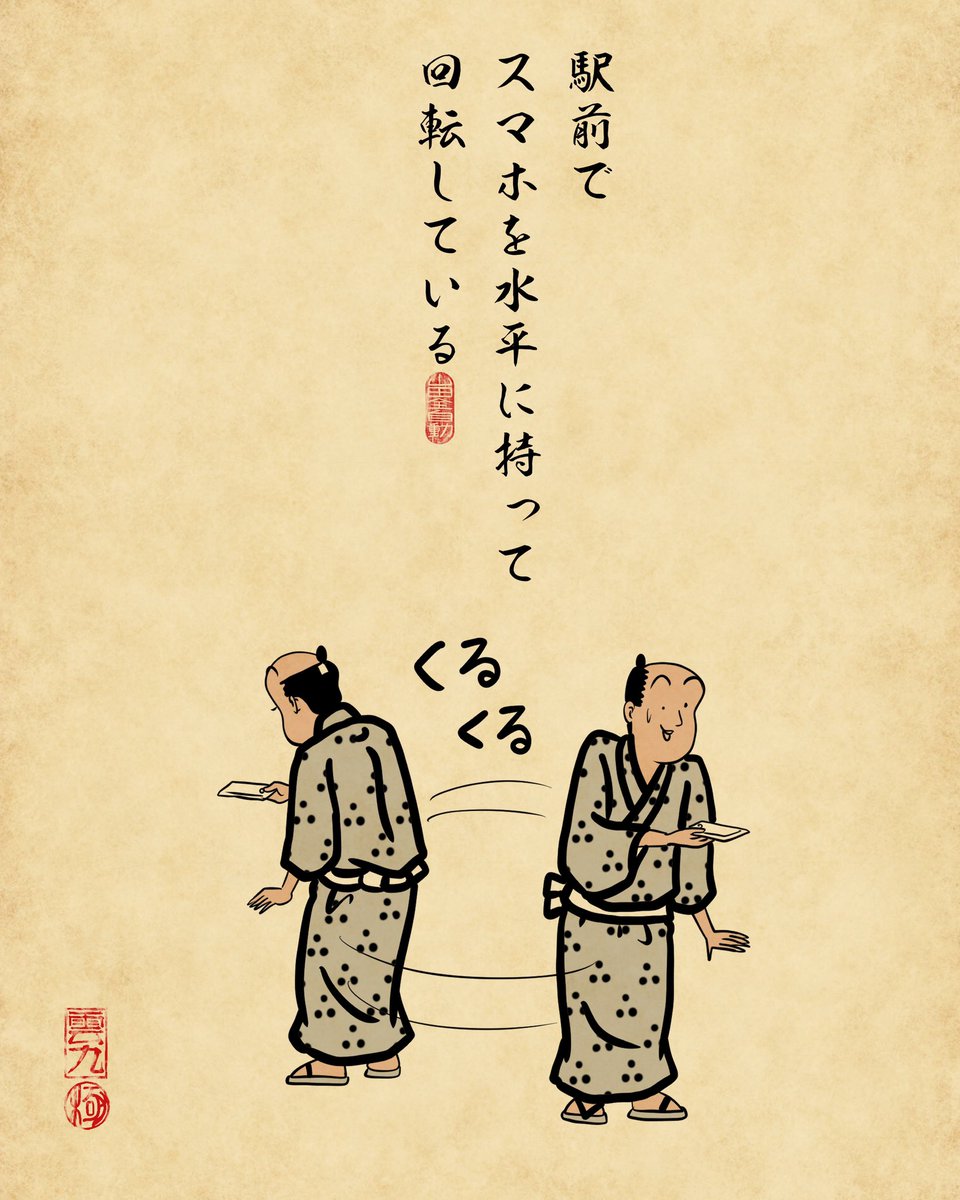 駅前で
スマホを水平に持って
回転している
くる
くる